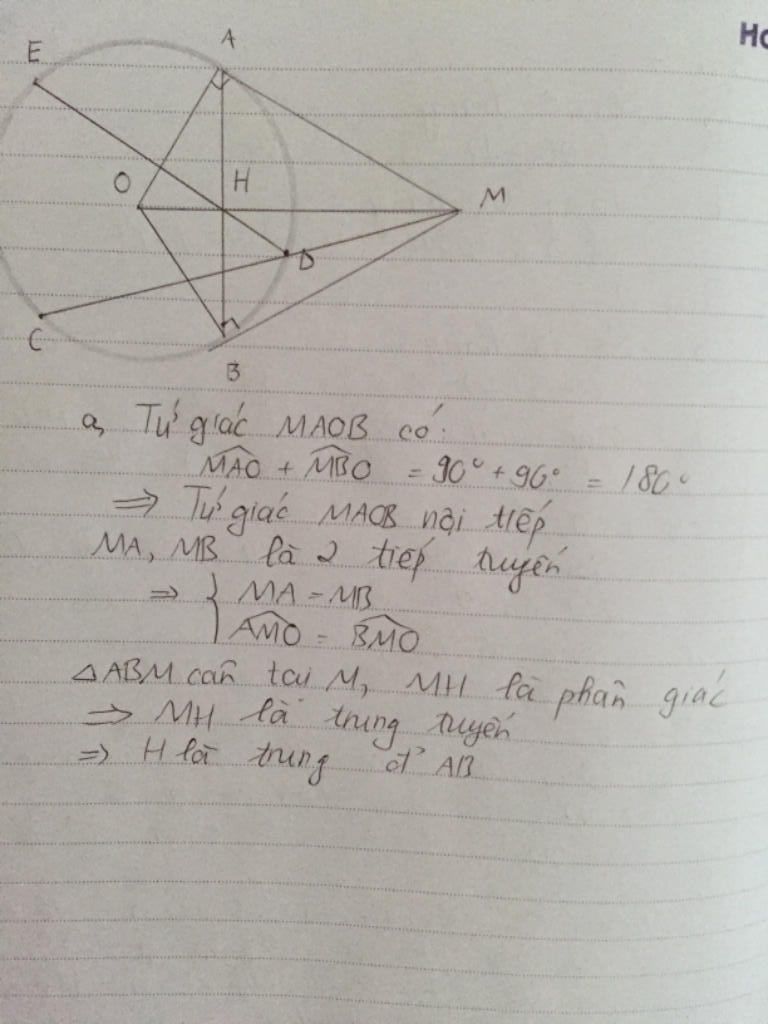 Ho
E
A
O
H
M
D
C
B
a, Tứ giác MAOB có:
MAO + MBO = 90° + 90° = 180°
=> Tứ giác MAOB nội tiếp
MA, MB là 2 tiếp tuyến
=> { MA = MB
AMO = BMO
△ABM cân tại M, MH là phân giác
=> MH là trung tuyến
=> H là trung đ' AB